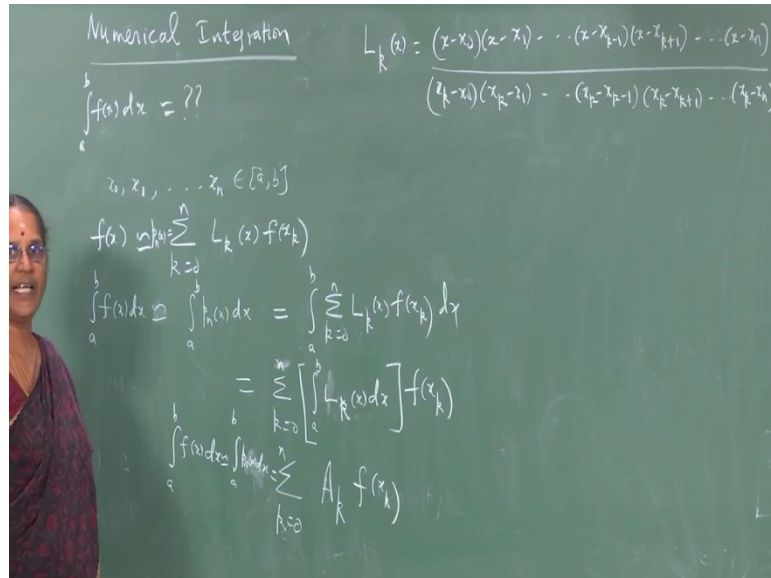 Numerical Integration
L_k(x) = (x-x_0)(x-x_1) - ... (x-x_{k-1})(x-x_{k+1}) - ... (x-x_n) / (x_k-x_0)(x_k-x_1) - ... (x_k-x_{k-1})(x_k-x_{k+1}) - ... (x_k-x_n)
∫_a^b f(x) dx = ??
x_0, x_1, .... x_n ∈ [a,b]
f(x) ≃ p_n(x) = Σ_{k=0}^n L_k(x) f(x_k)
∫_a^b f(x) dx ≃ ∫_a^b p_n(x) dx = ∫_a^b Σ_{k=0}^n L_k(x) f(x_k) dx
= Σ_{k=0}^n [∫_a^b L_k(x) dx] f(x_k)
∫_a^b f(x) dx ≃ ∫_a^b p_n(x) dx = Σ_{k=0}^n A_k f(x_k)